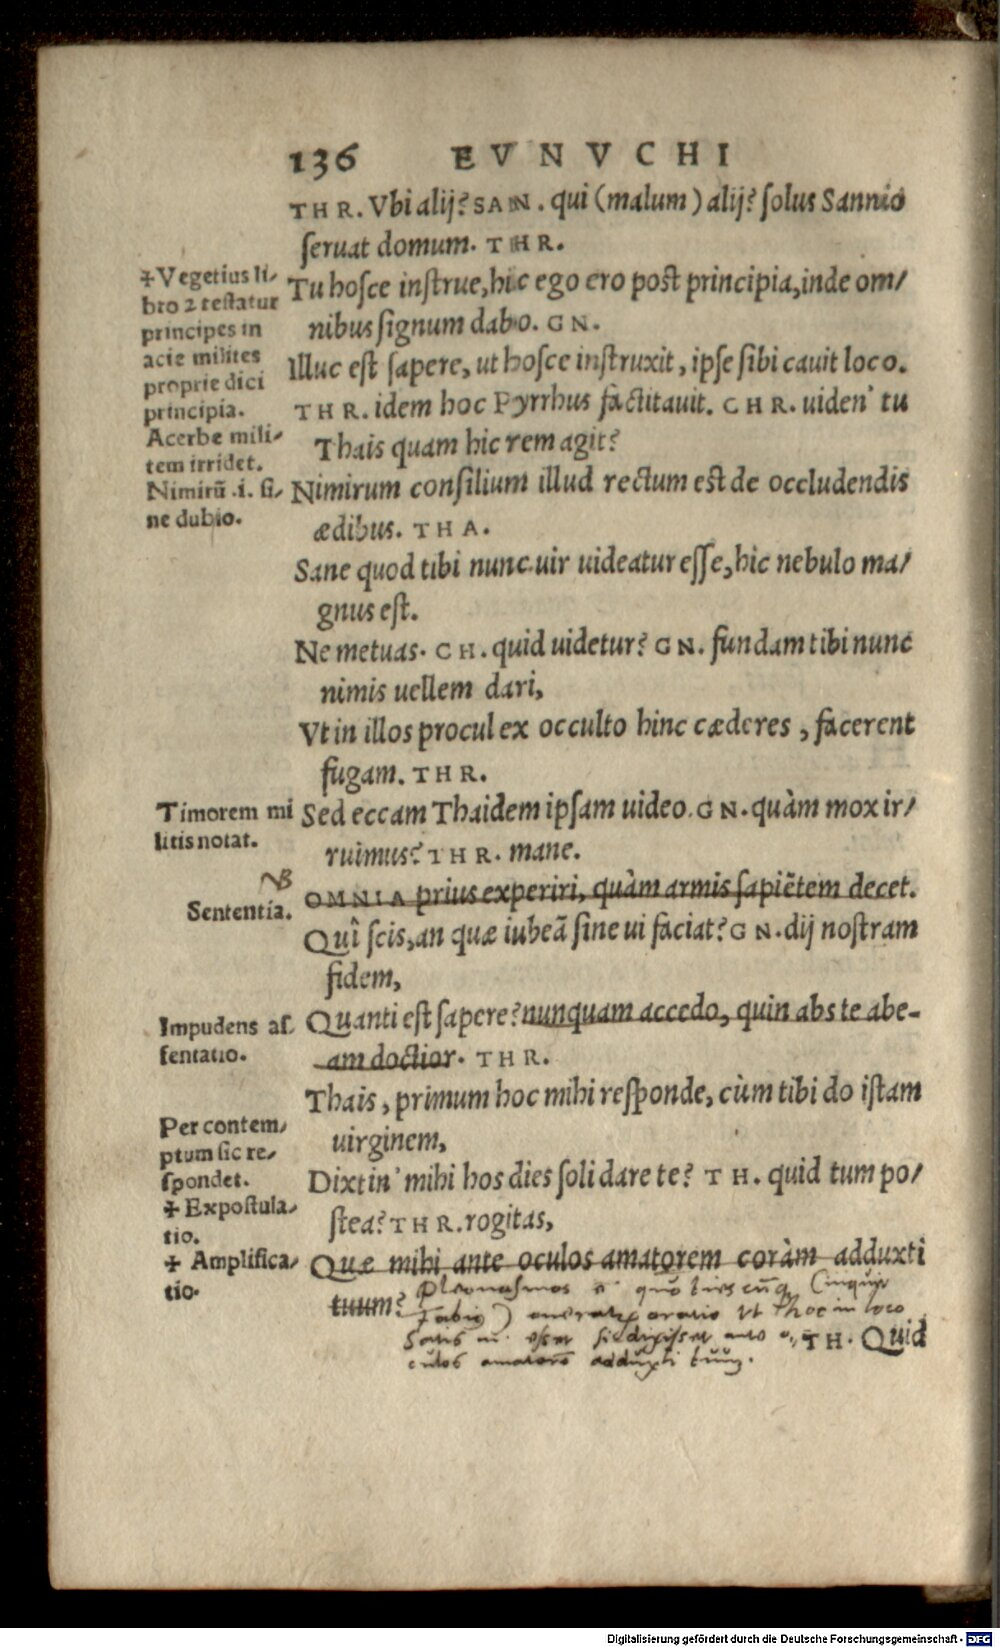 136 EVNVCHI
THR. Vbi alij? SAN. qui (malum) alij? ſolus Sannio
ſeruat domum. THR.
Tu hoſce inſtrue, hic ego ero post principia, inde om/
nibus ſignum dabo. GN.
Illuc eſt ſapere, ut hoſce inſtruxit, ipſe ſibi cauit loco.
THR. idem hoc Pyrrhus factitauit. CHR. uiden' tu
Thais quam hic rem agit?
Nimirum conſilium illud rectum est de occludendis
ædibus. THA.
Sane quod tibi nunc uir uideatur eſſe, hic nebulo ma/
gnus eſt.
Ne metuas. CH. quid uidetur? GN. fundam tibi nunc
nimis uellem dari,
Vt in illos procul ex occulto hinc cæderes, facerent
fugam. THR.
Sed eccam Thaidem ipſam uideo. GN. quàm mox ir/
ruimus? THR. mane.
OMNIA prius experiri, quàm armis ſapiẽtem decet.
Quî ſcis, an quæ iubeã ſine ui faciat? GN. dij noſtram
fidem,
Quanti eſt ſapere? nunquam accedo, quin abs te abe-
am doctior. THR.
Thais, primum hoc mihi reſponde, cùm tibi do iſtam
uirginem,
Dixtin' mihi hos dies ſoli dare te? TH. quid tum po/
ſtea? THR. rogitas,
Quæ mihi ante oculos amatorem coràm adduxti
tuum?
TH. Quid
✢Vegetius li/
bro 2 teſtatur
principes in
acie milites
proprie dici
principia.
Acerbe mili/
tem irridet.
Nimirũ .i. ſi/
ne dubio.
Timorem mi
litis notat.
NB
Sententia.
Impudens aſ
ſentatio.
Per contem/
ptum ſic re/
ſpondet.
✢ Expoſtula/
tio.
✢ Amplifica/
tio.
Pleonaſmos quoties cunq (inquit
Fabio) oneratur oratio vt hoc in loco
Satis eſſet ſi dixiſſet
culos amatorẽ adduxti tuũ.
Digitalisierung gefördert durch die Deutsche Forschungsgemeinschaft - DFG